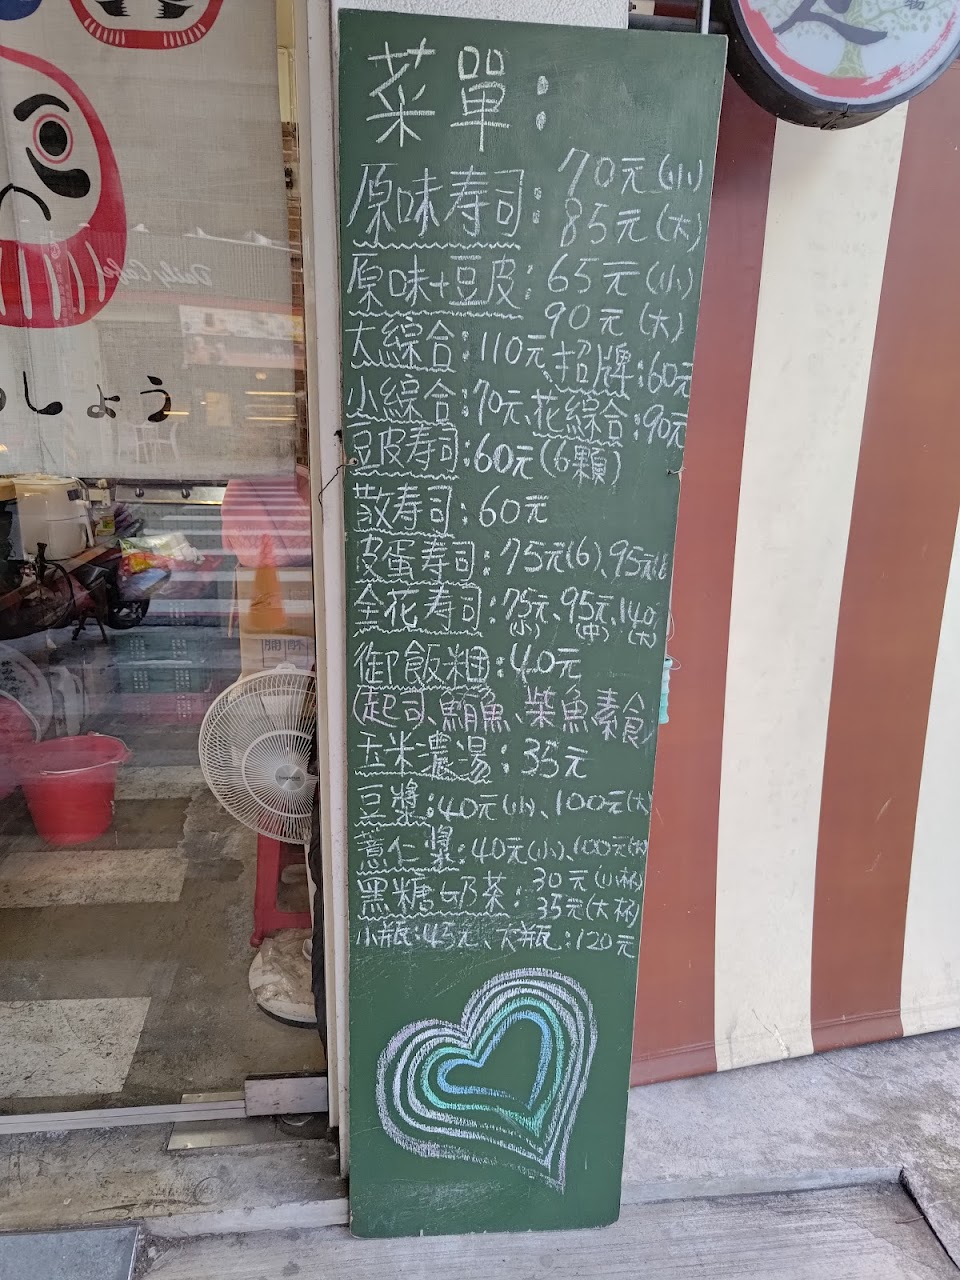 菜單：
原味寿司：70元(小)
85元(大)
原味+豆皮：65元(小)
90元(大)
大綜合：110元、招牌：60元
小綜合：70元、花綜合：90元
豆皮寿司：60元(6顆)
散寿司：60元
皮蛋寿司：75元(6)、95元(8
全花寿司：75元、95元、140
(小) (中) (大)
御飯糰：40元
(起司、鮪魚、柴魚素食)
玉米濃湯：35元
豆漿：40元(小)、100元(大)
薏仁漿：40元(小)、100元(大)
黑糖奶茶：30元(小杯)
35元(大杯)
小瓶：45元、大瓶：120元
しょう
Daily Cafe